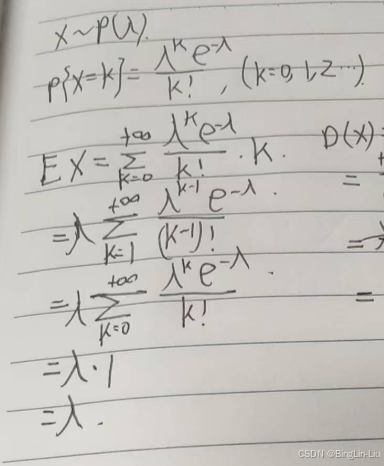 X~P(λ).
P{X=k}=λ^k e^-λ / k! , (k=0,1,2…)
EX=∑_{k=0}^{+∞} λ^k e^-λ / k! ·k.
=λ∑_{k=1}^{+∞} λ^{k-1} e^-λ / (k-1)! .
=λ∑_{k=0}^{+∞} λ^k e^-λ / k! .
=λ·1
=λ.
D(X)=
=
=
=
CSDN @BingLin-Liu